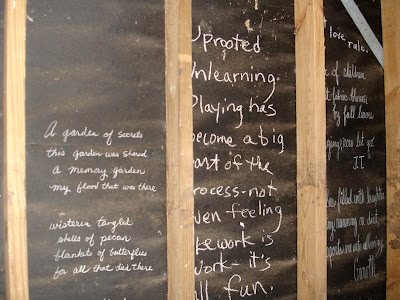 A garden of secrets
this garden was shared
a memory garden
my flood that was there
wisteria tangled
shells of pecan
blankets of butterflies
for all that lies there
Uprooted
Unlearning.
Playing has
become a big
part of the
process-not
even feeling
like work is
work- it's
all fun.
love rule.
of children
fabric blooms
by fall leaves
let go!
II
filled with laughter
running on dirt
Growth